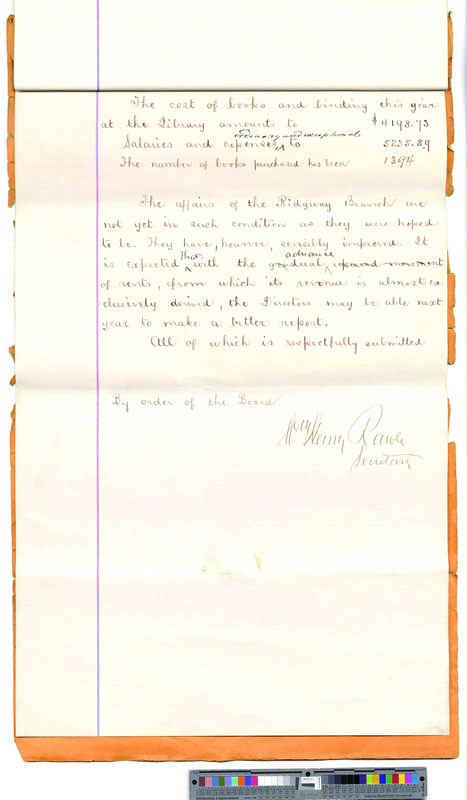 The cost of books and binding this year
at the Library amount to $4198.73
ordinary and exceptional
Salaries and expenses ^ to 5225.89
The number of books purchased has been 1394
The affairs of the Ridgway Branch are
not yet in such condition as they were hoped
to be. They have, however, sensibly improved. It
that advance
is expected ^ with the gradual ^ upward movement
of rents, from which its revenue is almost ex-
clusively derived, the Directors may be able next
year to make a better report.
All of which is respectfully submitted
By order of the Board.
Wm Henry Rawle
Secretary